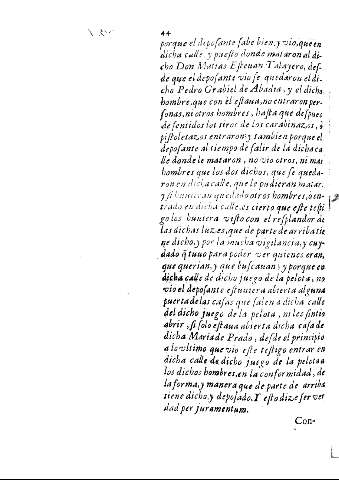 44
porque el deposante sabe bien, y vio, que en
dicha calle, y puesto donde mataron al di-
cho Don Matias Esteuan Talayero, des-
de que el deposante vio se quedaron el di-
cho Pedro Grabiel de Abadia, y el dicho
hombre, que con èl estaua, no entraron per-
sonas, ni otros hombres, hasta que despues
de sentidos los tiros de los carabinazos, ò
pistoletazos, entraron; y tambien porque el
deposante al tiempo de salir de la dicha ca-
lle donde le mataron, no vio otros, ni mas
hombres que los dos dichos, que se queda-
ron en dicha calle, que le pudieran matar,
y si huuieran quedado otros hombres, ò en-
trado en dicha calle, es cierto que este testi
go los huuiera visto con el resplandor de
las dichas luzes, que de parte de arriba tie
ne dicho, y por la mucha vigilancia, y cuy-
dado q̃ tuuo para poder ver quienes eran,
que querian, y que buscauan; y porque en
dicha calle de dicho juego de la pelota, no
vio el deposante estuuiera abierta alguna
puerta de las casas que salen a dicha calle
del dicho juego de la pelota, ni les sintio
abrir, si solo estaua abierta dicha casa de
dicha Maria de Prado, desde el principio
a lo vltimo que vio este testigo entrar en
dicha calle de dicho juego de la pelota a
los dichos hombres, en la conformidad, de
la forma, y manera que de parte de arriba
tiene dicho, y deposado. Y esto dize ser ver
dad per juramentum.
Con-